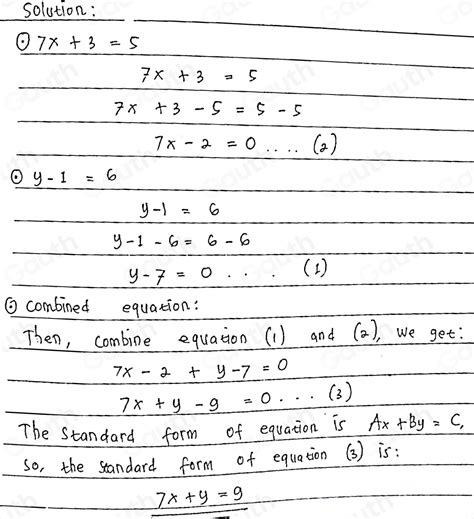 Solution:
⊙ 7x + 3 = 5
7x + 3 = 5
7x + 3 - 5 = 5 - 5
7x - 2 = 0 .... (2)
⊙ y - 1 = 6
y-1 = 6
y-1 - 6 = 6 - 6
y - 7 = 0 . . . (1)
⊙ combined equation:
Then, combine equation (1) and (2), we get:
7x - 2 + y - 7 = 0
7x + y - 9 = 0 . . . (3)
The standard form of equation is Ax + By = C,
so, the standard form of equation (3) is:
7x + y = 9